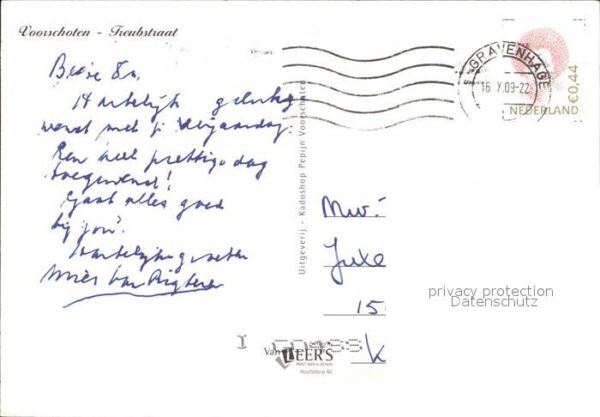 Voorschoten - Treubstraat
Hartelijk
met je verjaardag.
Een heel prettige dag
toegewenst!
Gaat alles goed
bij jou?
Hartelijke groeten
Mies van
Uitgeverij - Kadoshop Pepijn Voorschoten
'S-GRAVENHAGE
16 X.09-22
NEDERLAND €0,44
Mw.
15
K
privacy protection
Datenschutz
Van
LEER'S
PRINT SIGN & DESIGN
Hoofddorp NL